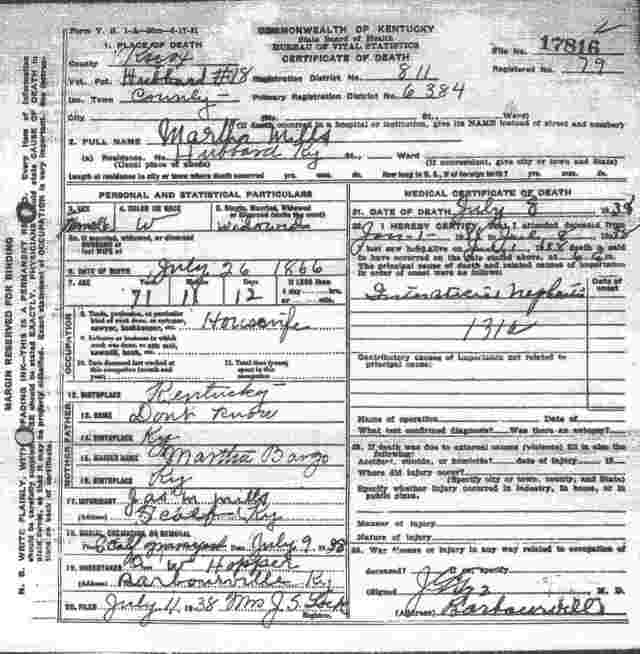 Form V. S. 1-A
COMMONWEALTH OF KENTUCKY
State Board of Health
BUREAU OF VITAL STATISTICS
CERTIFICATE OF DEATH
File No. 17816
Registered No. 79
1. PLACE OF DEATH
County Knox
Vot. Pct. Hubbard #18 Registration District No. 811
Inc. Town County Primary Registration District No. 6384
City No. St., Ward)
(If death occurred in a hospital or institution, give its NAME instead of street and number)
2. FULL NAME Martha Mills
(a) Residence. No. Hubbard Ky St., Ward
(Usual place of abode) (If nonresident, give city or town and State)
Length of residence in city or town where death occurred yrs. mos. ds. How long in U. S., if of foreign birth? yrs. mos. ds.
PERSONAL AND STATISTICAL PARTICULARS
3. SEX 4. COLOR OR RACE 5. Single, Married, Widowed or Divorced (write the word)
Female W Widowed
5a. If married, widowed, or divorced
HUSBAND of
(or) WIFE of
6. DATE OF BIRTH July 26 1866
7. AGE Years Months Days If LESS than
71 11 12 1 day, hrs.
or min.
OCCUPATION
8. Trade, profession, or particular kind of work done, as spinner, sawyer, bookkeeper, etc. Housewife
9. Industry or business in which work was done, as silk mill, sawmill, bank, etc.
10. Date deceased last worked at this occupation (month and year)
11. Total time (years) spent in this occupation
12. BIRTHPLACE Kentucky
FATHER
13. NAME Dont Know
14. BIRTHPLACE Ky
MOTHER
15. MAIDEN NAME Martha Bargo
16. BIRTHPLACE Ky
17. INFORMANT Jas M Mills
(Address) Scalf Ky
18. BURIAL, CREMATION OR REMOVAL
Place Scalf Date July 9 1938
19. UNDERTAKER W Hopper
(Address) Barbourville Ky
20. FILED July 11 1938 Mrs J. S. Lock
Registrar.
MEDICAL CERTIFICATE OF DEATH
21. DATE OF DEATH July 8 1938
22. I HEREBY CERTIFY, That I attended deceased from
I last saw h alive on death is said
to have occurred on the date stated above, at
The principal cause of death and related causes of importance in order of onset were as follows:
Date of onset
Interstitial Nephritis
131b
Contributory causes of importance not related to principal cause:
Name of operation Date of
What test confirmed diagnosis? Was there an autopsy?
23. If death was due to external causes (violence) fill in also the following:
Accident, suicide, or homicide? date of injury 19
Where did injury occur?
(Specify city or town, county, and State)
Specify whether injury occurred in industry, in home, or in public place.
Manner of injury
Nature of injury
24. Was disease or injury in any way related to occupation of deceased? If so, specify
(Signed) M. D.
(Address) Barbourville
MARGIN RESERVED FOR BINDING